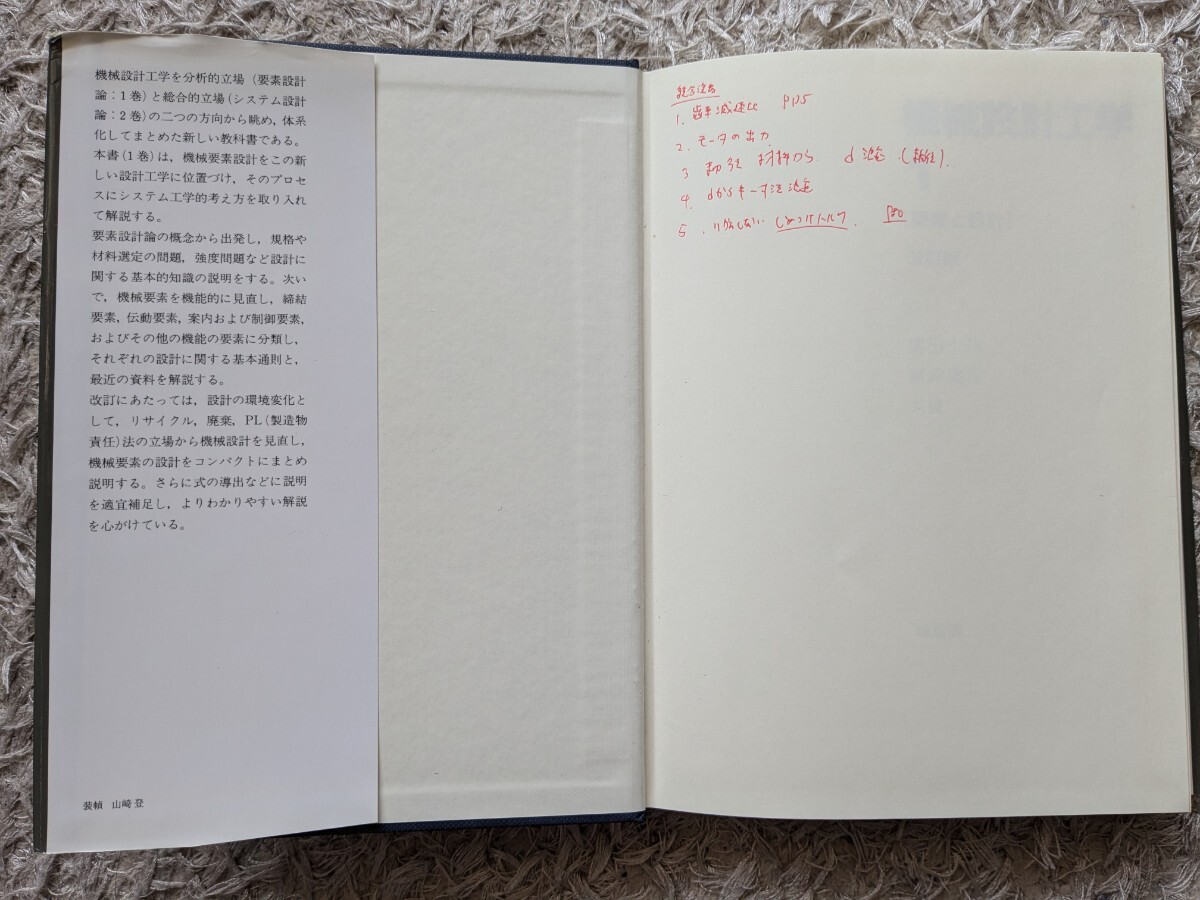 機械設計工学を分析的立場（要素設計
論：1巻）と総合的立場（システム設計
論：2巻）の二つの方向から眺め，体系
化してまとめた新しい教科書である。
本書（1巻）は，機械要素設計をこの新
しい設計工学に位置づけ，そのプロセ
スにシステム工学的考え方を取り入れ
て解説する。
要素設計論の概念から出発し，規格や
材料選定の問題，強度問題など設計に
関する基本的知識の説明をする。次い
で，機械要素を機能的に見直し，締結
要素，伝動要素，案内および制御要素，
およびその他の機能の要素に分類し，
それぞれの設計に関する基本通則と，
最近の資料を解説する。
改訂にあたっては，設計の環境変化と
して，リサイクル，廃棄，PL（製造物
責任）法の立場から機械設計を見直し，
機械要素の設計をコンパクトにまとめ
説明する。さらに式の導出などに説明
を適宜補足し，よりわかりやすい解説
を心がけている。
装幀 山崎登
1. 歯車減速比
2. モータの出力
3 材料から d 決定
4. dからキー寸法決定
5. しめつけトルク.